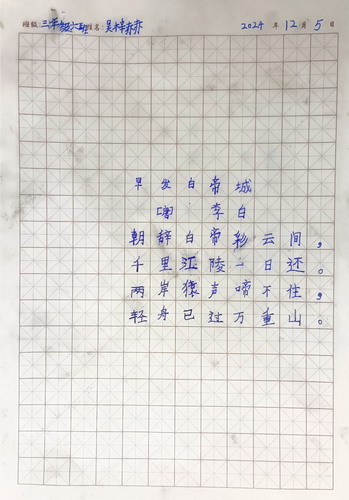 班级：三年级六班 姓名：吴梓乔 2024 年 12 月 5 日
早发白帝城
唐 李白
朝辞白帝彩云间，
千里江陵一日还。
两岸猿声啼不住，
轻舟已过万重山。